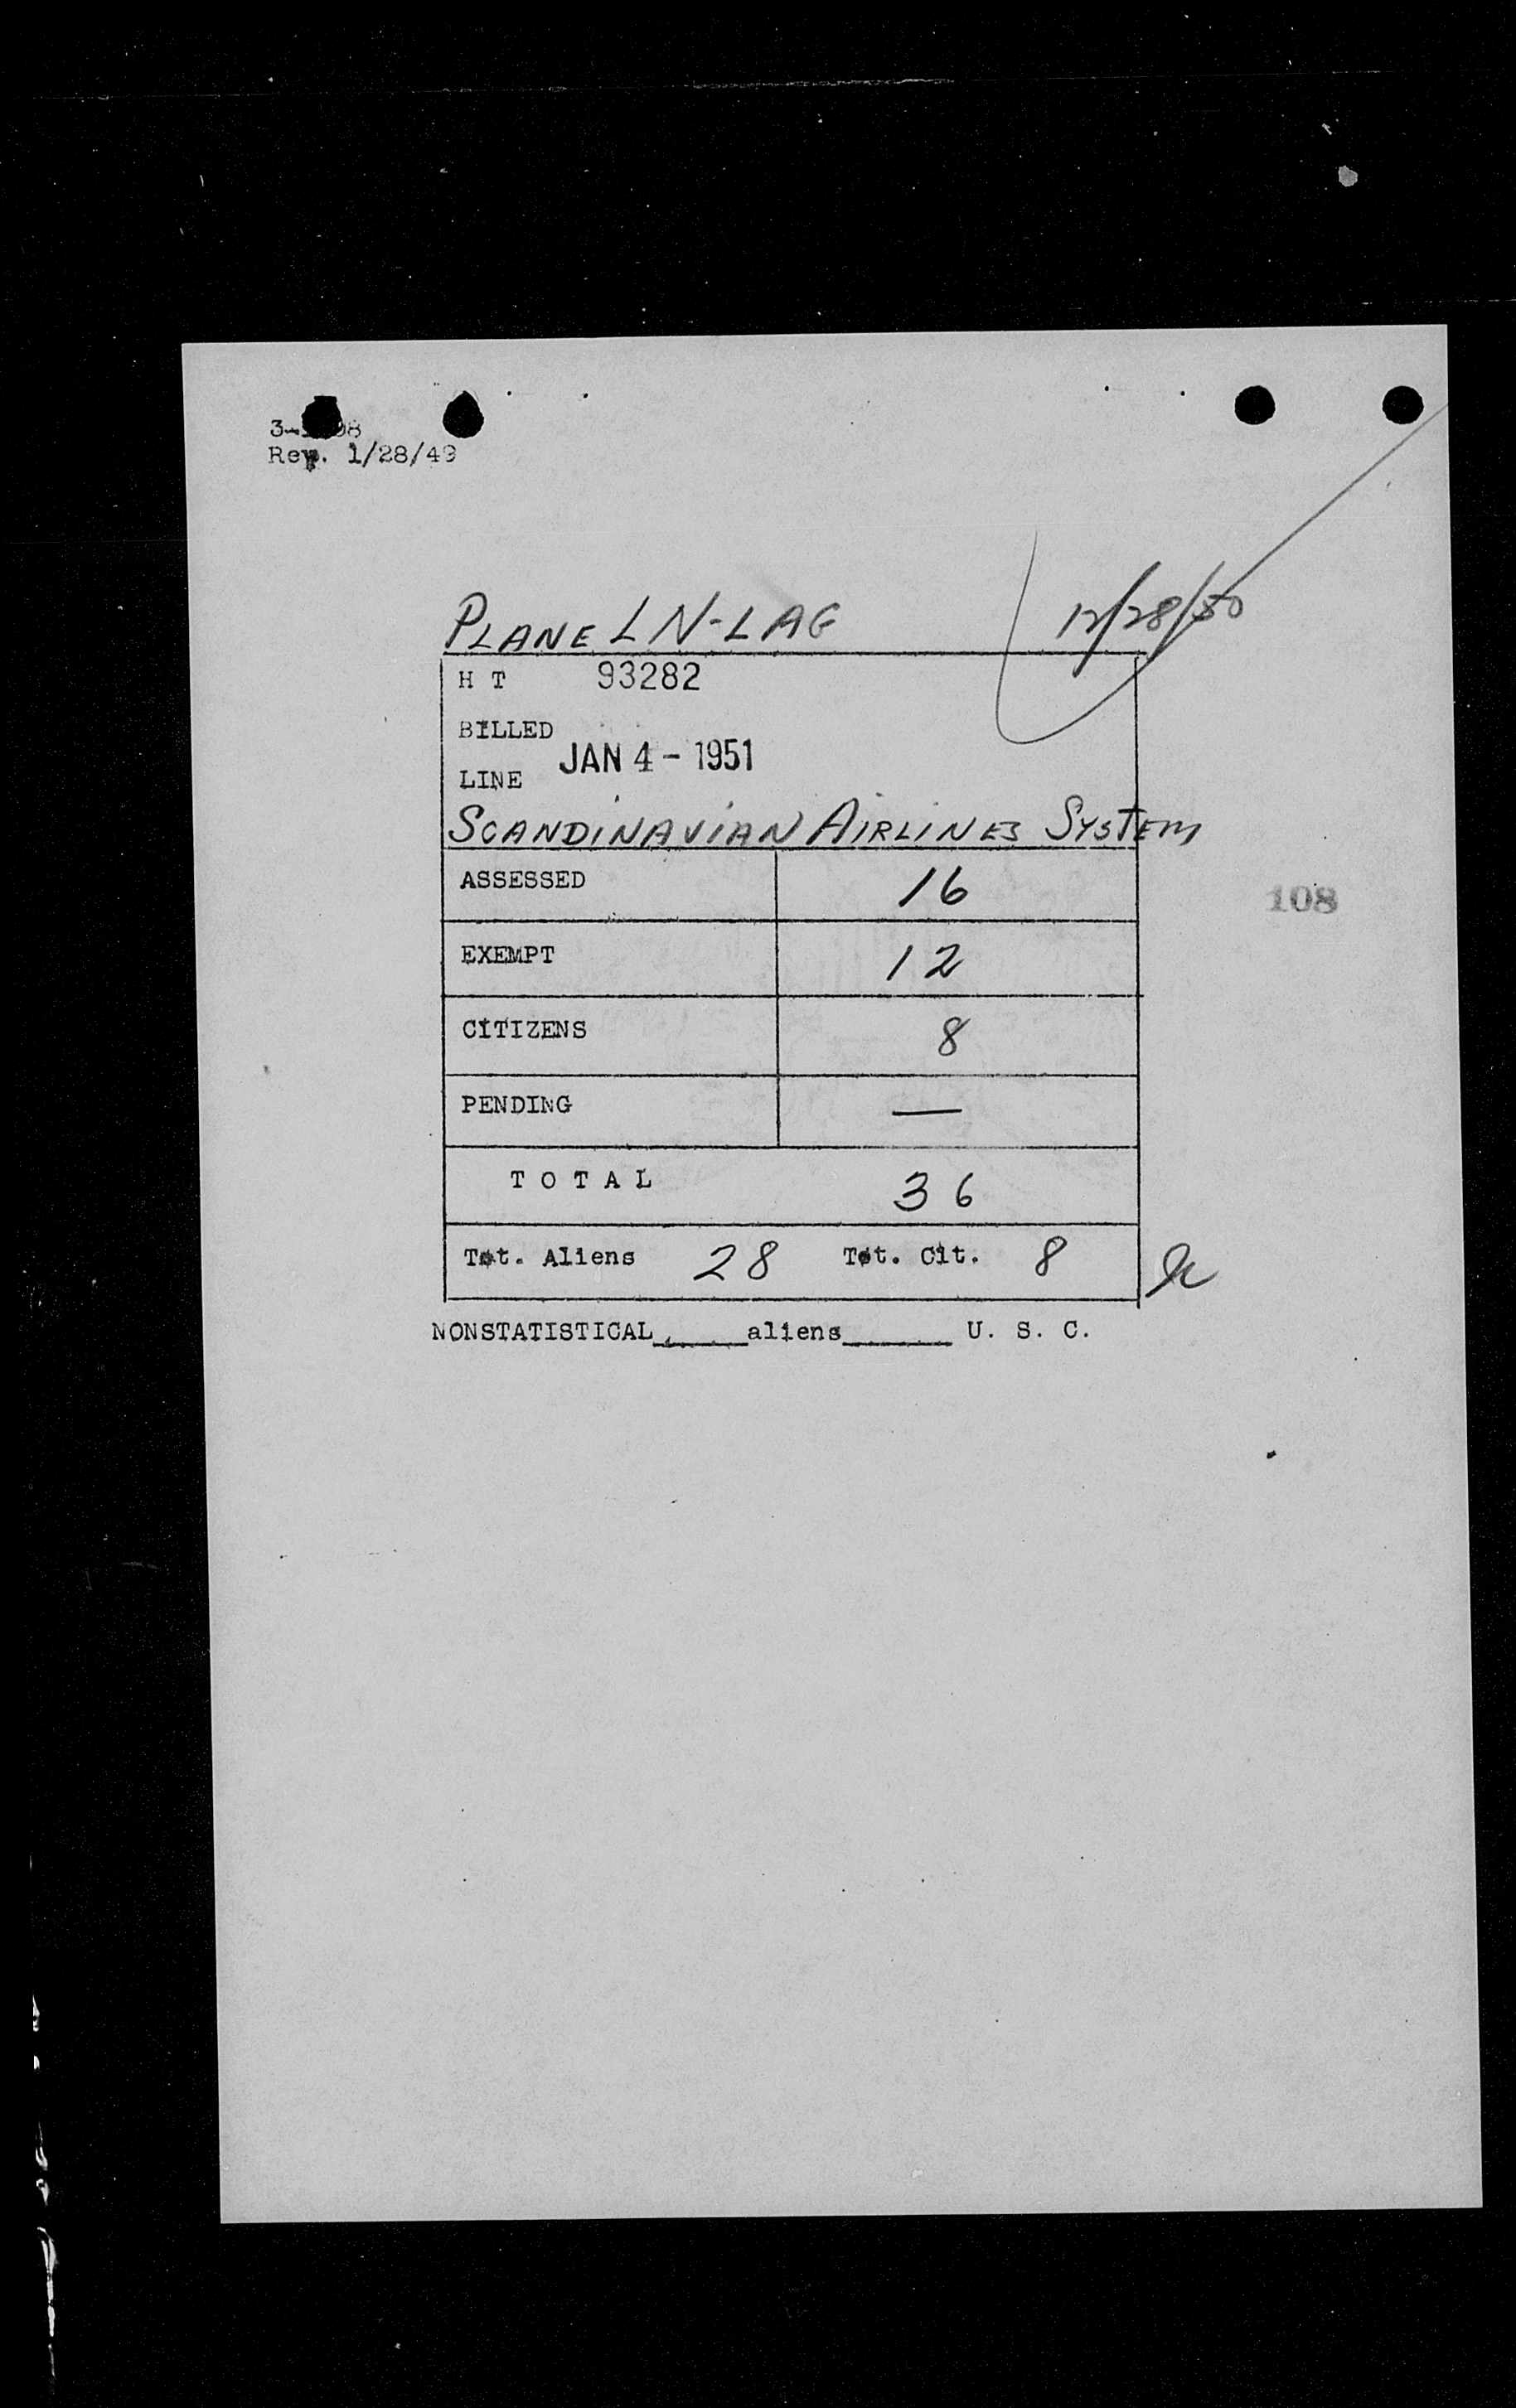 Rev. 1/28/49
PLANE LN-LAG 12/28/50
H T 93282
BILLED
JAN 4 - 1951
LINE
SCANDINAVIAN AIRLINES SYSTEM
ASSESSED 16
108
EXEMPT 12
CITIZENS 8
PENDING —
T O T A L 36
Tot. Aliens 28 Tot. Cit. 8
NONSTATISTICAL_____aliens______ U. S. C.